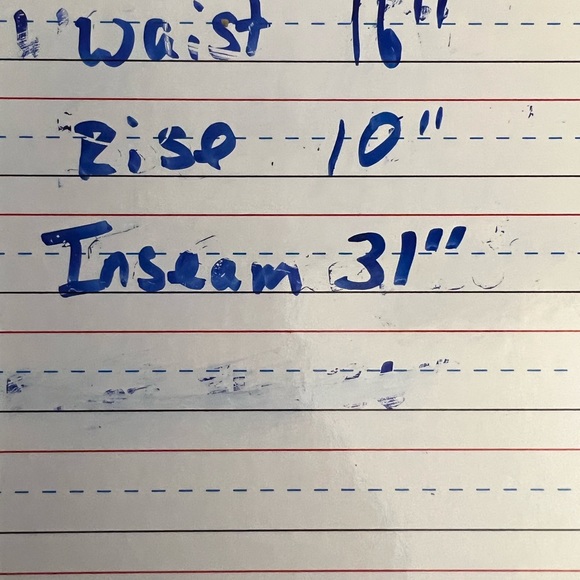 Waist 16"
Rise 10"
Inseam 31"